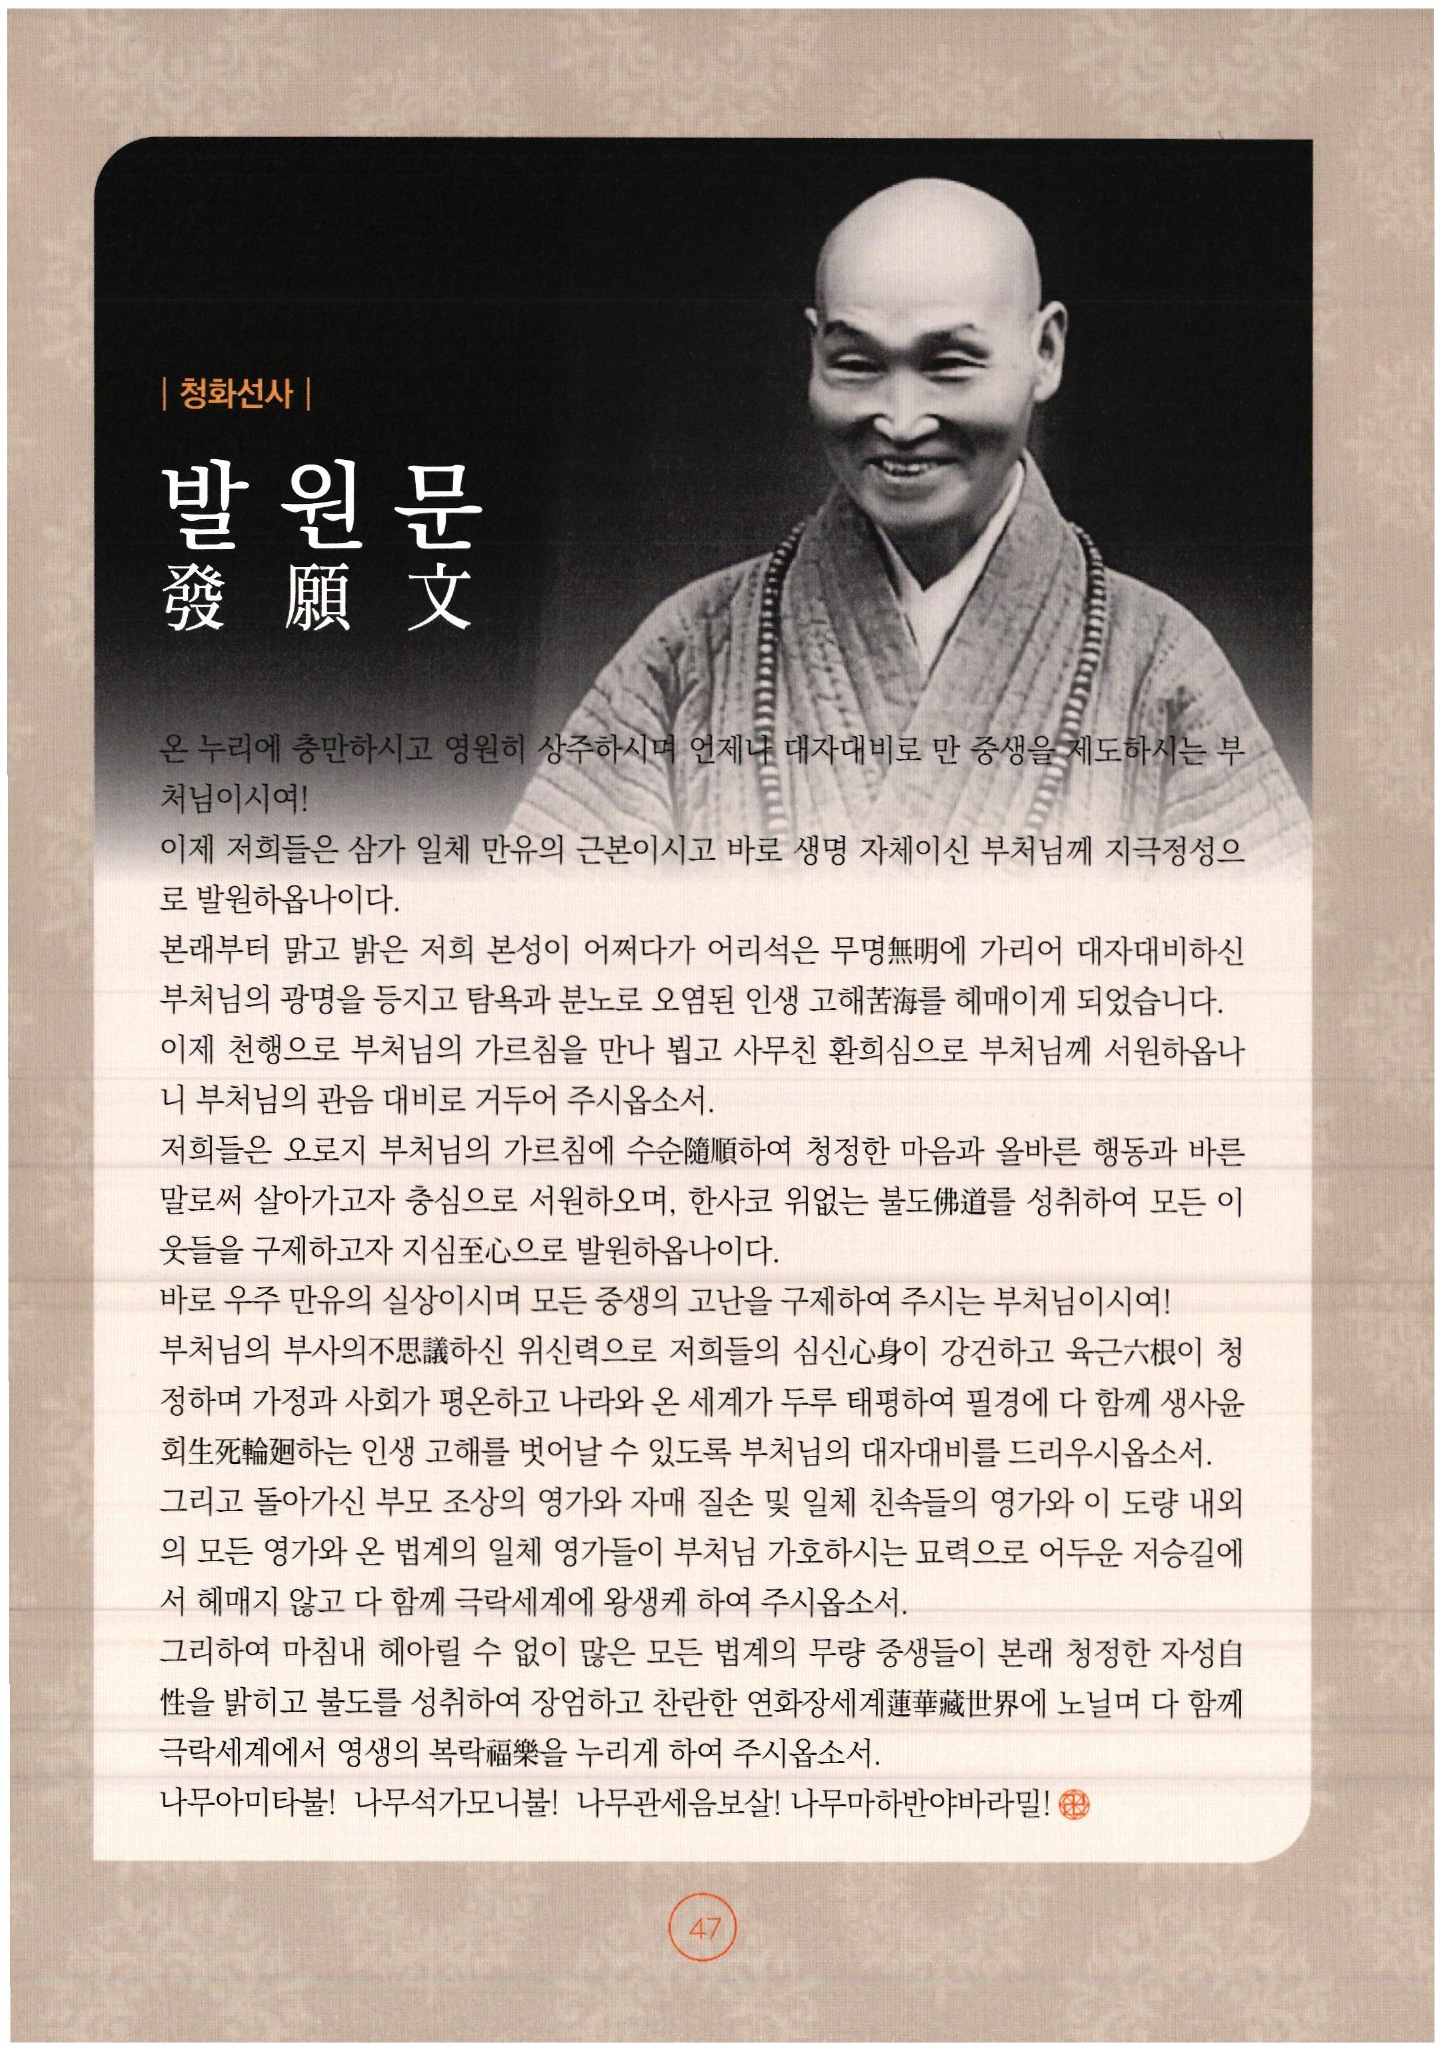 | 청화선사 |
발 원 문
發 願 文
온 누리에 충만하시고 영원히 상주하시며 언제나 대자대비로 만 중생을 제도하시는 부
처님이시여!
이제 저희들은 삼가 일체 만유의 근본이시고 바로 생명 자체이신 부처님께 지극정성으
로 발원하옵나이다.
본래부터 맑고 밝은 저희 본성이 어쩌다가 어리석은 무명無明에 가리어 대자대비하신
부처님의 광명을 등지고 탐욕과 분노로 오염된 인생 고해苦海를 헤매이게 되었습니다.
이제 천행으로 부처님의 가르침을 만나 뵙고 사무친 환희심으로 부처님께 서원하옵나
니 부처님의 관음 대비로 거두어 주시옵소서.
저희들은 오로지 부처님의 가르침에 수순隨順하여 청정한 마음과 올바른 행동과 바른
말로써 살아가고자 충심으로 서원하오며, 한사코 위없는 불도佛道를 성취하여 모든 이
웃들을 구제하고자 지심至心으로 발원하옵나이다.
바로 우주 만유의 실상이시며 모든 중생의 고난을 구제하여 주시는 부처님이시여!
부처님의 부사의不思議하신 위신력으로 저희들의 심신心身이 강건하고 육근六根이 청
정하며 가정과 사회가 평온하고 나라와 온 세계가 두루 태평하여 필경에 다 함께 생사윤
회生死輪廻하는 인생 고해를 벗어날 수 있도록 부처님의 대자대비를 드리우시옵소서.
그리고 돌아가신 부모 조상의 영가와 자매 질손 및 일체 친속들의 영가와 이 도량 내외
의 모든 영가와 온 법계의 일체 영가들이 부처님 가호하시는 묘력으로 어두운 저승길에
서 헤매지 않고 다 함께 극락세계에 왕생케 하여 주시옵소서.
그리하여 마침내 헤아릴 수 없이 많은 모든 법계의 무량 중생들이 본래 청정한 자성自
性을 밝히고 불도를 성취하여 장엄하고 찬란한 연화장세계蓮華藏世界에 노닐며 다 함께
극락세계에서 영생의 복락福樂을 누리게 하여 주시옵소서.
나무아미타불! 나무석가모니불! 나무관세음보살! 나무마하반야바라밀!
47